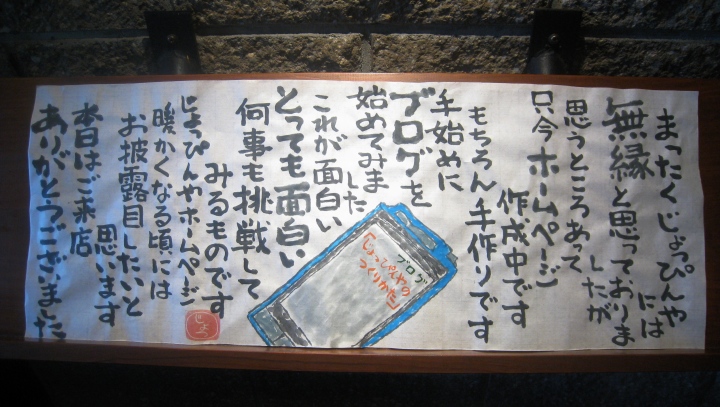 まったくじょっぴんや
には
無縁と思っておりま
したが
思うところあって
只今ホームページ
作成中です
もちろん手作りです
手始めに
ブログを
始めてみま
した
これが面白い
とっても面白い
何事も挑戦して
みるものです
じょっぴんやホームページ
暖かくなる頃には
お披露目したいと
思います
本日はご来店
ありがとうございました
ブログ
「じょっぴんやの
つくりかた」
じょっ